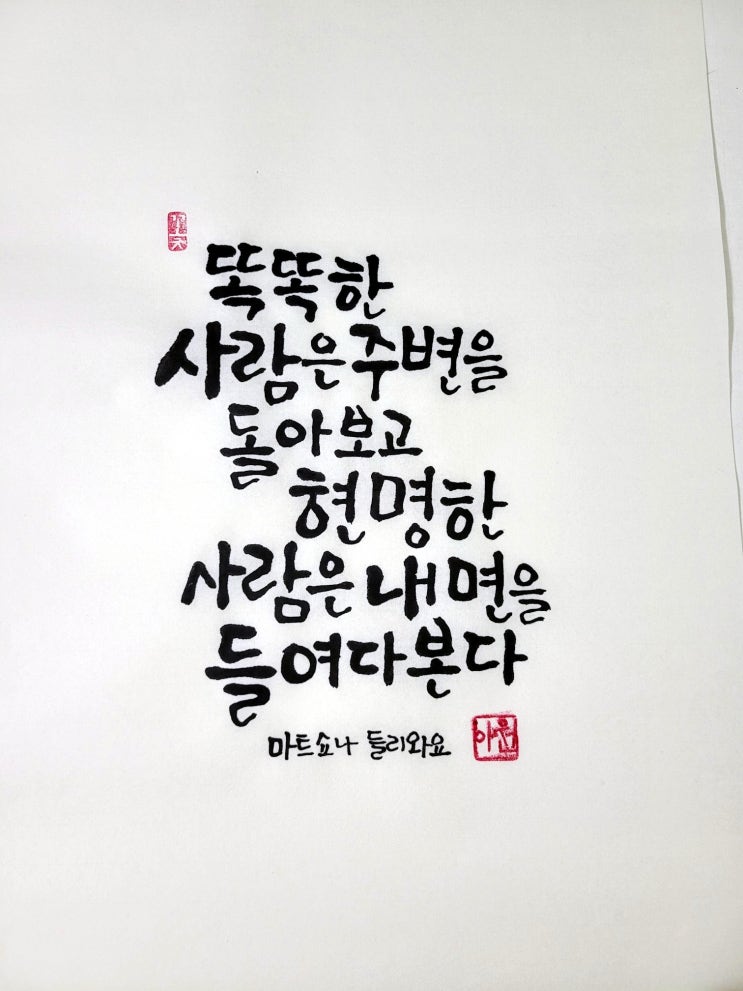 똑똑한
사람은 주변을
돌아보고
현명한
사람은 내면을
들여다본다
마트쇼나 들리와요